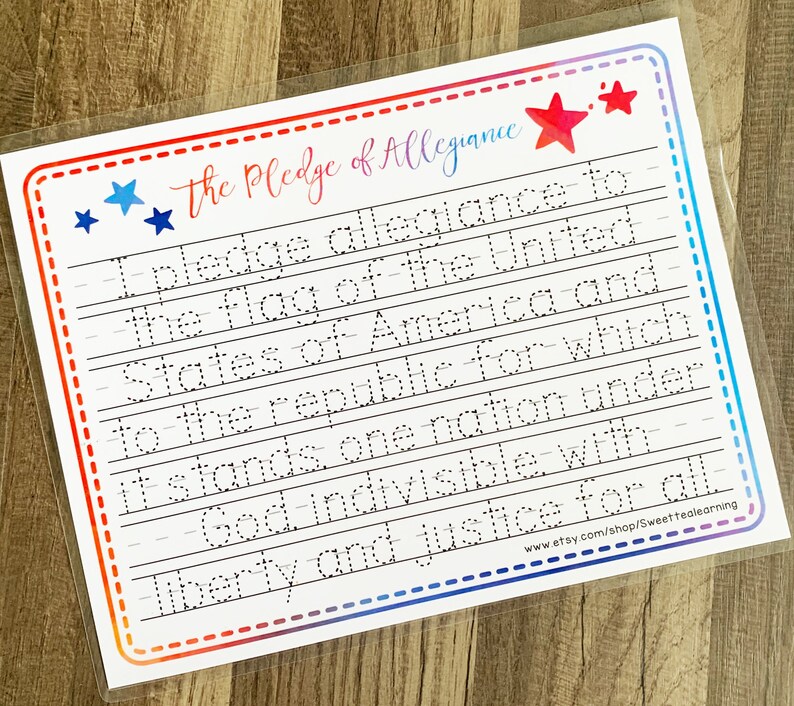 The Pledge of Allegiance
I pledge allegiance to
the flag of the United
States of America and
to the republic for which
it stands, one nation under
God, indivisible, with
liberty and justice for all.
www.etsy.com/shop/Sweettealearning